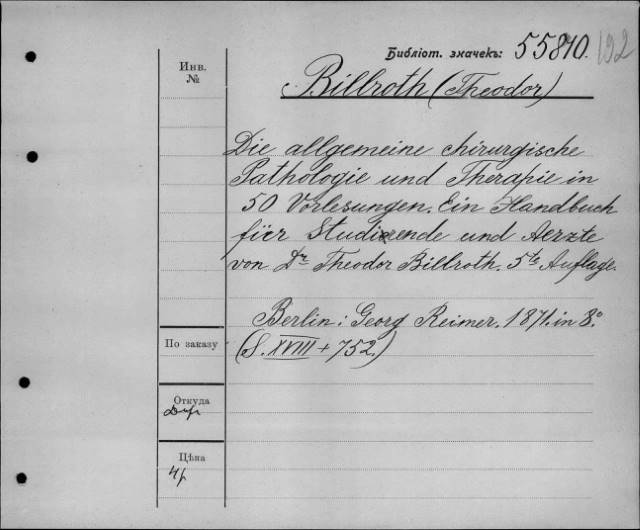 Библіот. значекъ: 55870. 192
Инв.
№
Billroth (Theodor)
Die allgemeine chirurgische
Pathologie und Therapie in
50 Vorlesungen. Ein Handbuch
für Studierende und Aerzte
von Dr Theodor Billroth. 5te Auflage.
Berlin: Georg Reimer. 1871. in 8.°
(S. XVIII + 752.)
По заказу
Откуда
Цѣна
4р